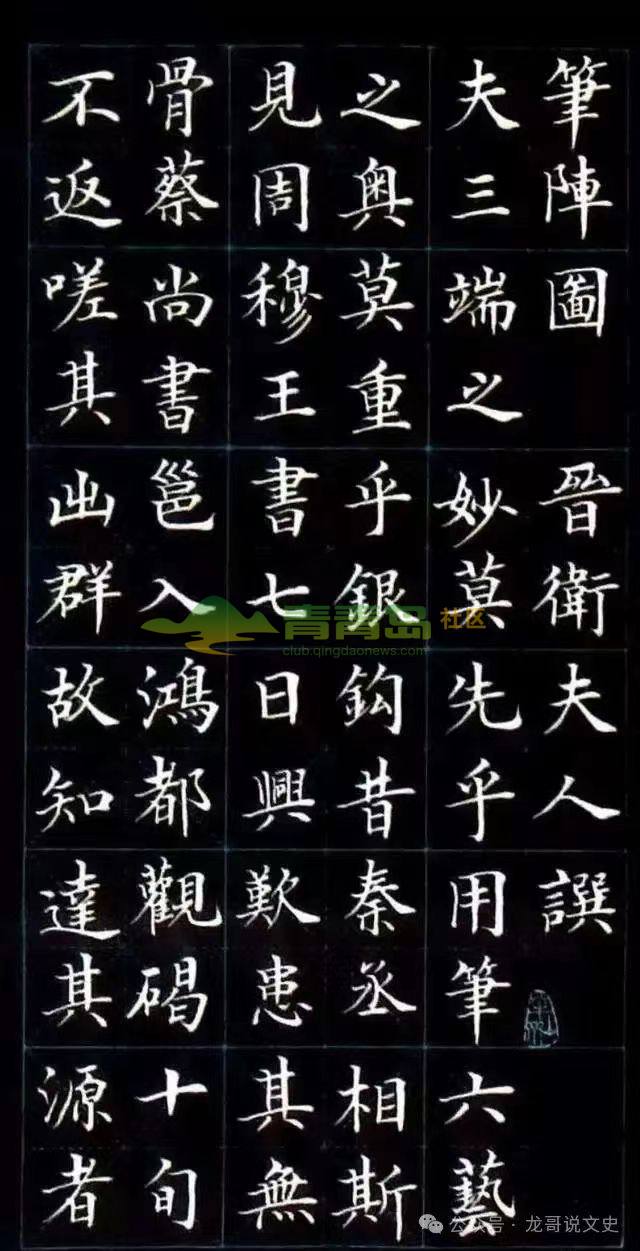 筆陣圖 晉衛夫人譔
夫三端之妙莫先乎用筆六藝
之奧莫重乎銀鈎昔秦丞相斯
見周穆王書七日興歎患其無
骨蔡尚書邕入鴻都觀碣十旬
不返嗟其出群故知達其源者
青青岛社区
club.qingdaonews.com
公众号 · 龙哥说文史